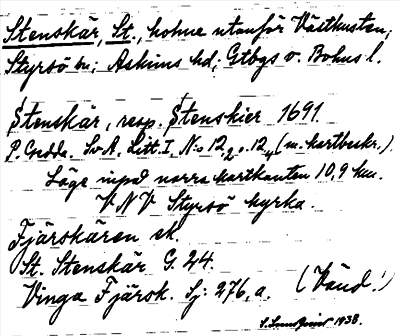 Stenskär, St., holme utanför Västkusten;
Styrsö sn; Askims hd; Gtbgs o. Bohus l.
Stenskär, resp. Stenskier 1691.
P. Gedda. Sv A. Litt. I, N:o 12,2 o. 12,4 (m. kartbeskr.).
Läge inpå norra kartkanten 10,9 km.
V N V Styrsö kyrka.
Fjärskären sk.
St. Stenskär G. 24.
Vinga Fjärsk. Sj: 276, a. (Vänd!)
1938.